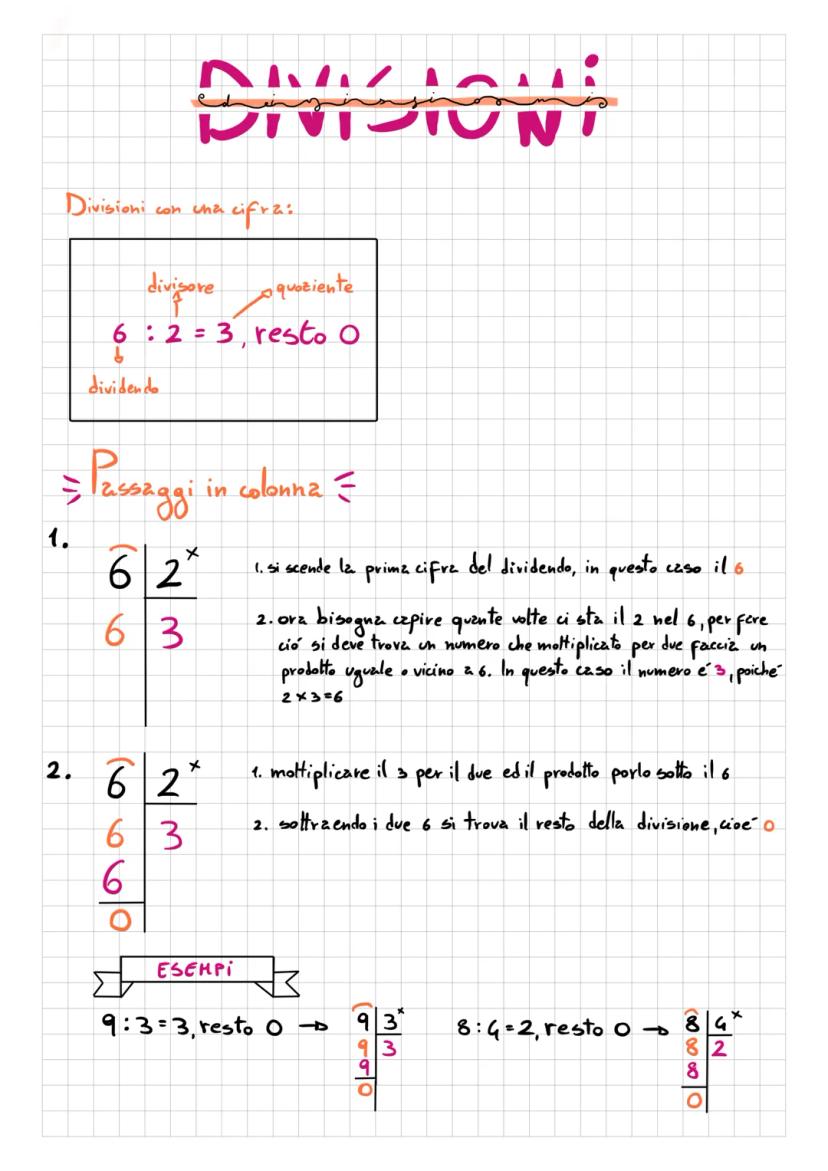 DIVISIONI
divisioni
Divisioni con una cifra:
divisore quoziente
6 : 2 = 3, resto 0
dividendo
Passaggi in colonna
1.
6 2 x
6 3
1. si scende la prima cifra del dividendo, in questo caso il 6
2. ora bisogna capire quante volte ci sta il 2 nel 6, per fare
ció si deve trova un numero che moltiplicato per due faccia un
prodotto uguale o vicino a 6. In questo caso il numero é 3, poiché
2 x 3 = 6
2.
6 2 x
6 3
6
0
1. moltiplicare il 3 per il due ed il prodotto porlo sotto il 6
2. sottraendo i due 6 si trova il resto della divisione, cioé 0
ESEMPi
9 : 3 = 3, resto 0 →
9 3 x
9 3
9
0
8 : 4 = 2, resto 0 →
8 4 x
8 2
8
0